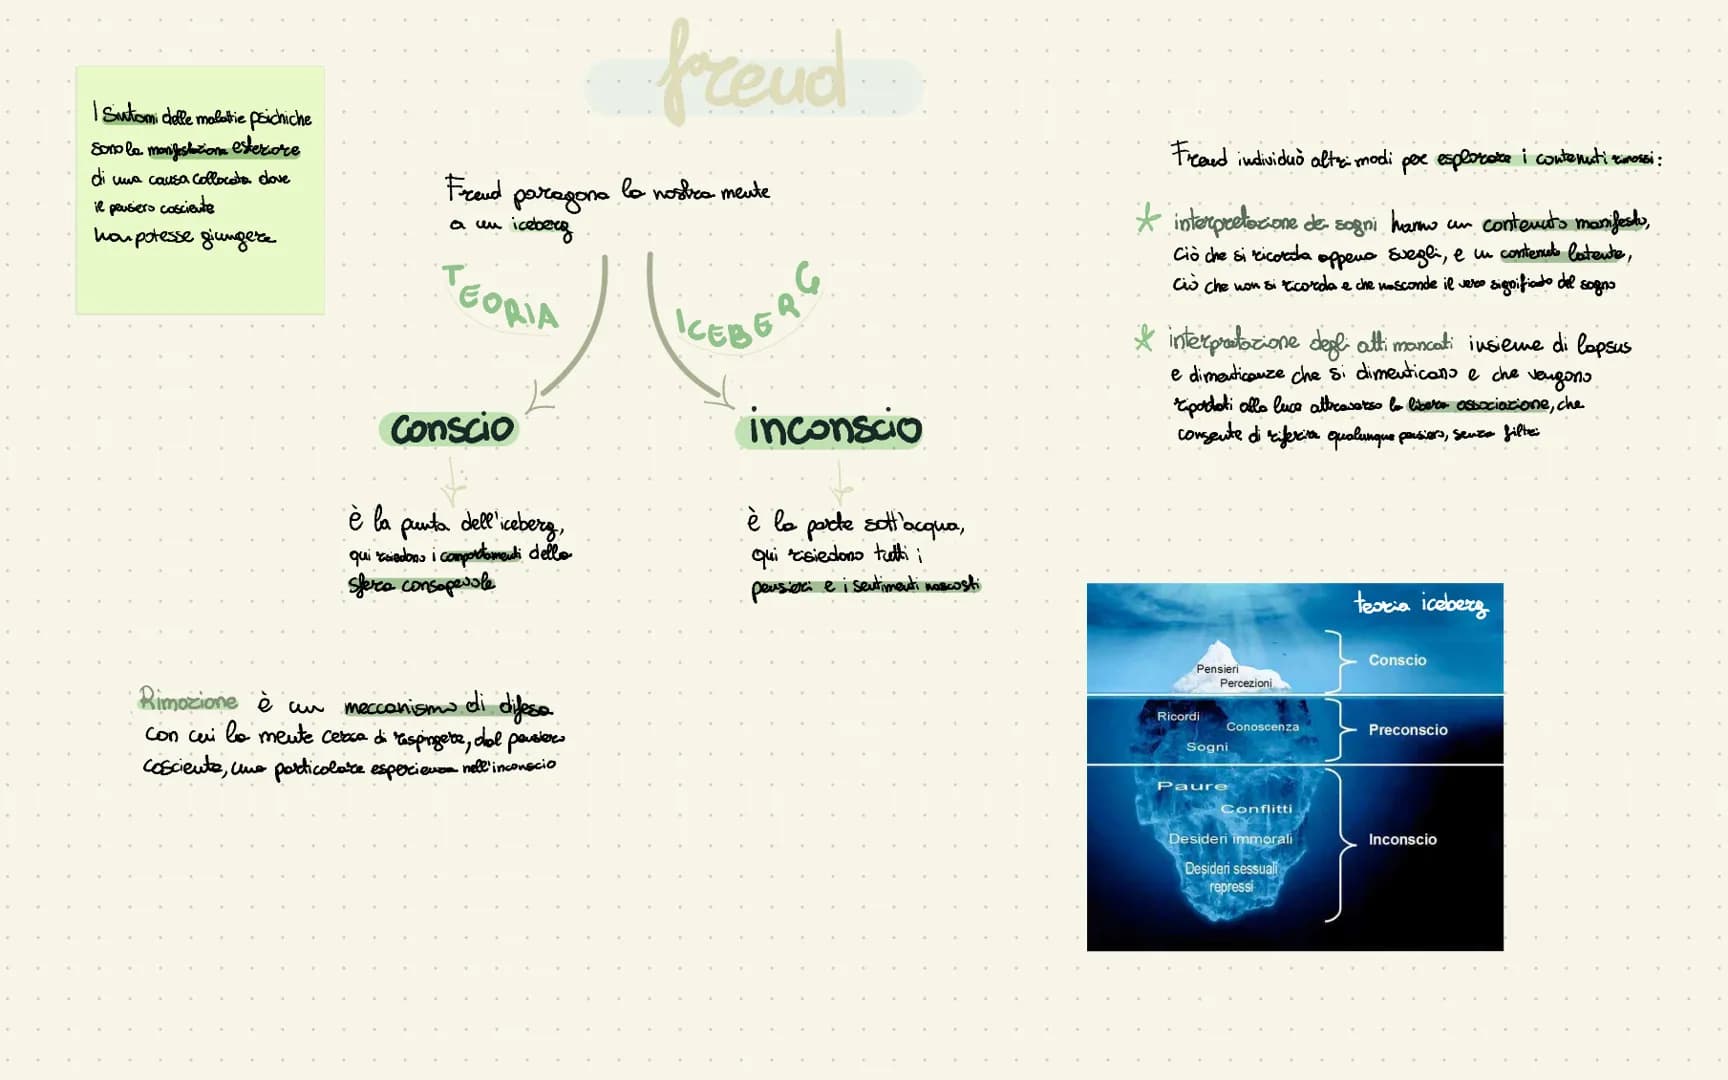 freud
I Sintomi delle malattie psichiche
sono la manifestazione esteriore
di una causa collocata dove
il pensiero cosciente
non potesse giungere
Freud paragona la nostra mente
a un iceberg
TEORIA ICEBERG
conscio
è la punta dell'iceberg,
qui risiedono i comportamenti della
sfera consapevole
inconscio
è la parte sott'acqua,
qui risiedono tutti i
pensieri e i sentimenti nascosti
Rimozione è un meccanismo di difesa
con cui la mente cerca di respingere, dal pensiero
cosciente, una particolare esperienza nell'inconscio
Freud individuò altri modi per esplorare i contenuti rimossi:
* interpretazione dei sogni hanno un contenuto manifesto,
ciò che si ricorda appena svegli, e un contenuto latente,
ciò che non si ricorda e che nasconde il vero significato del sogno
* interpretazione degli atti mancati insieme di lapsus
e dimenticanze che si dimenticano e che vengono
riportati alla luce attraverso la libera associazione, che
consente di riferire qualunque pensiero, senza filtri
teoria iceberg
Pensieri
Percezioni
Conscio
Ricordi
Conoscenza
Sogni
Preconscio
Paure
Conflitti
Desideri immorali
Desideri sessuali
repressi
Inconscio